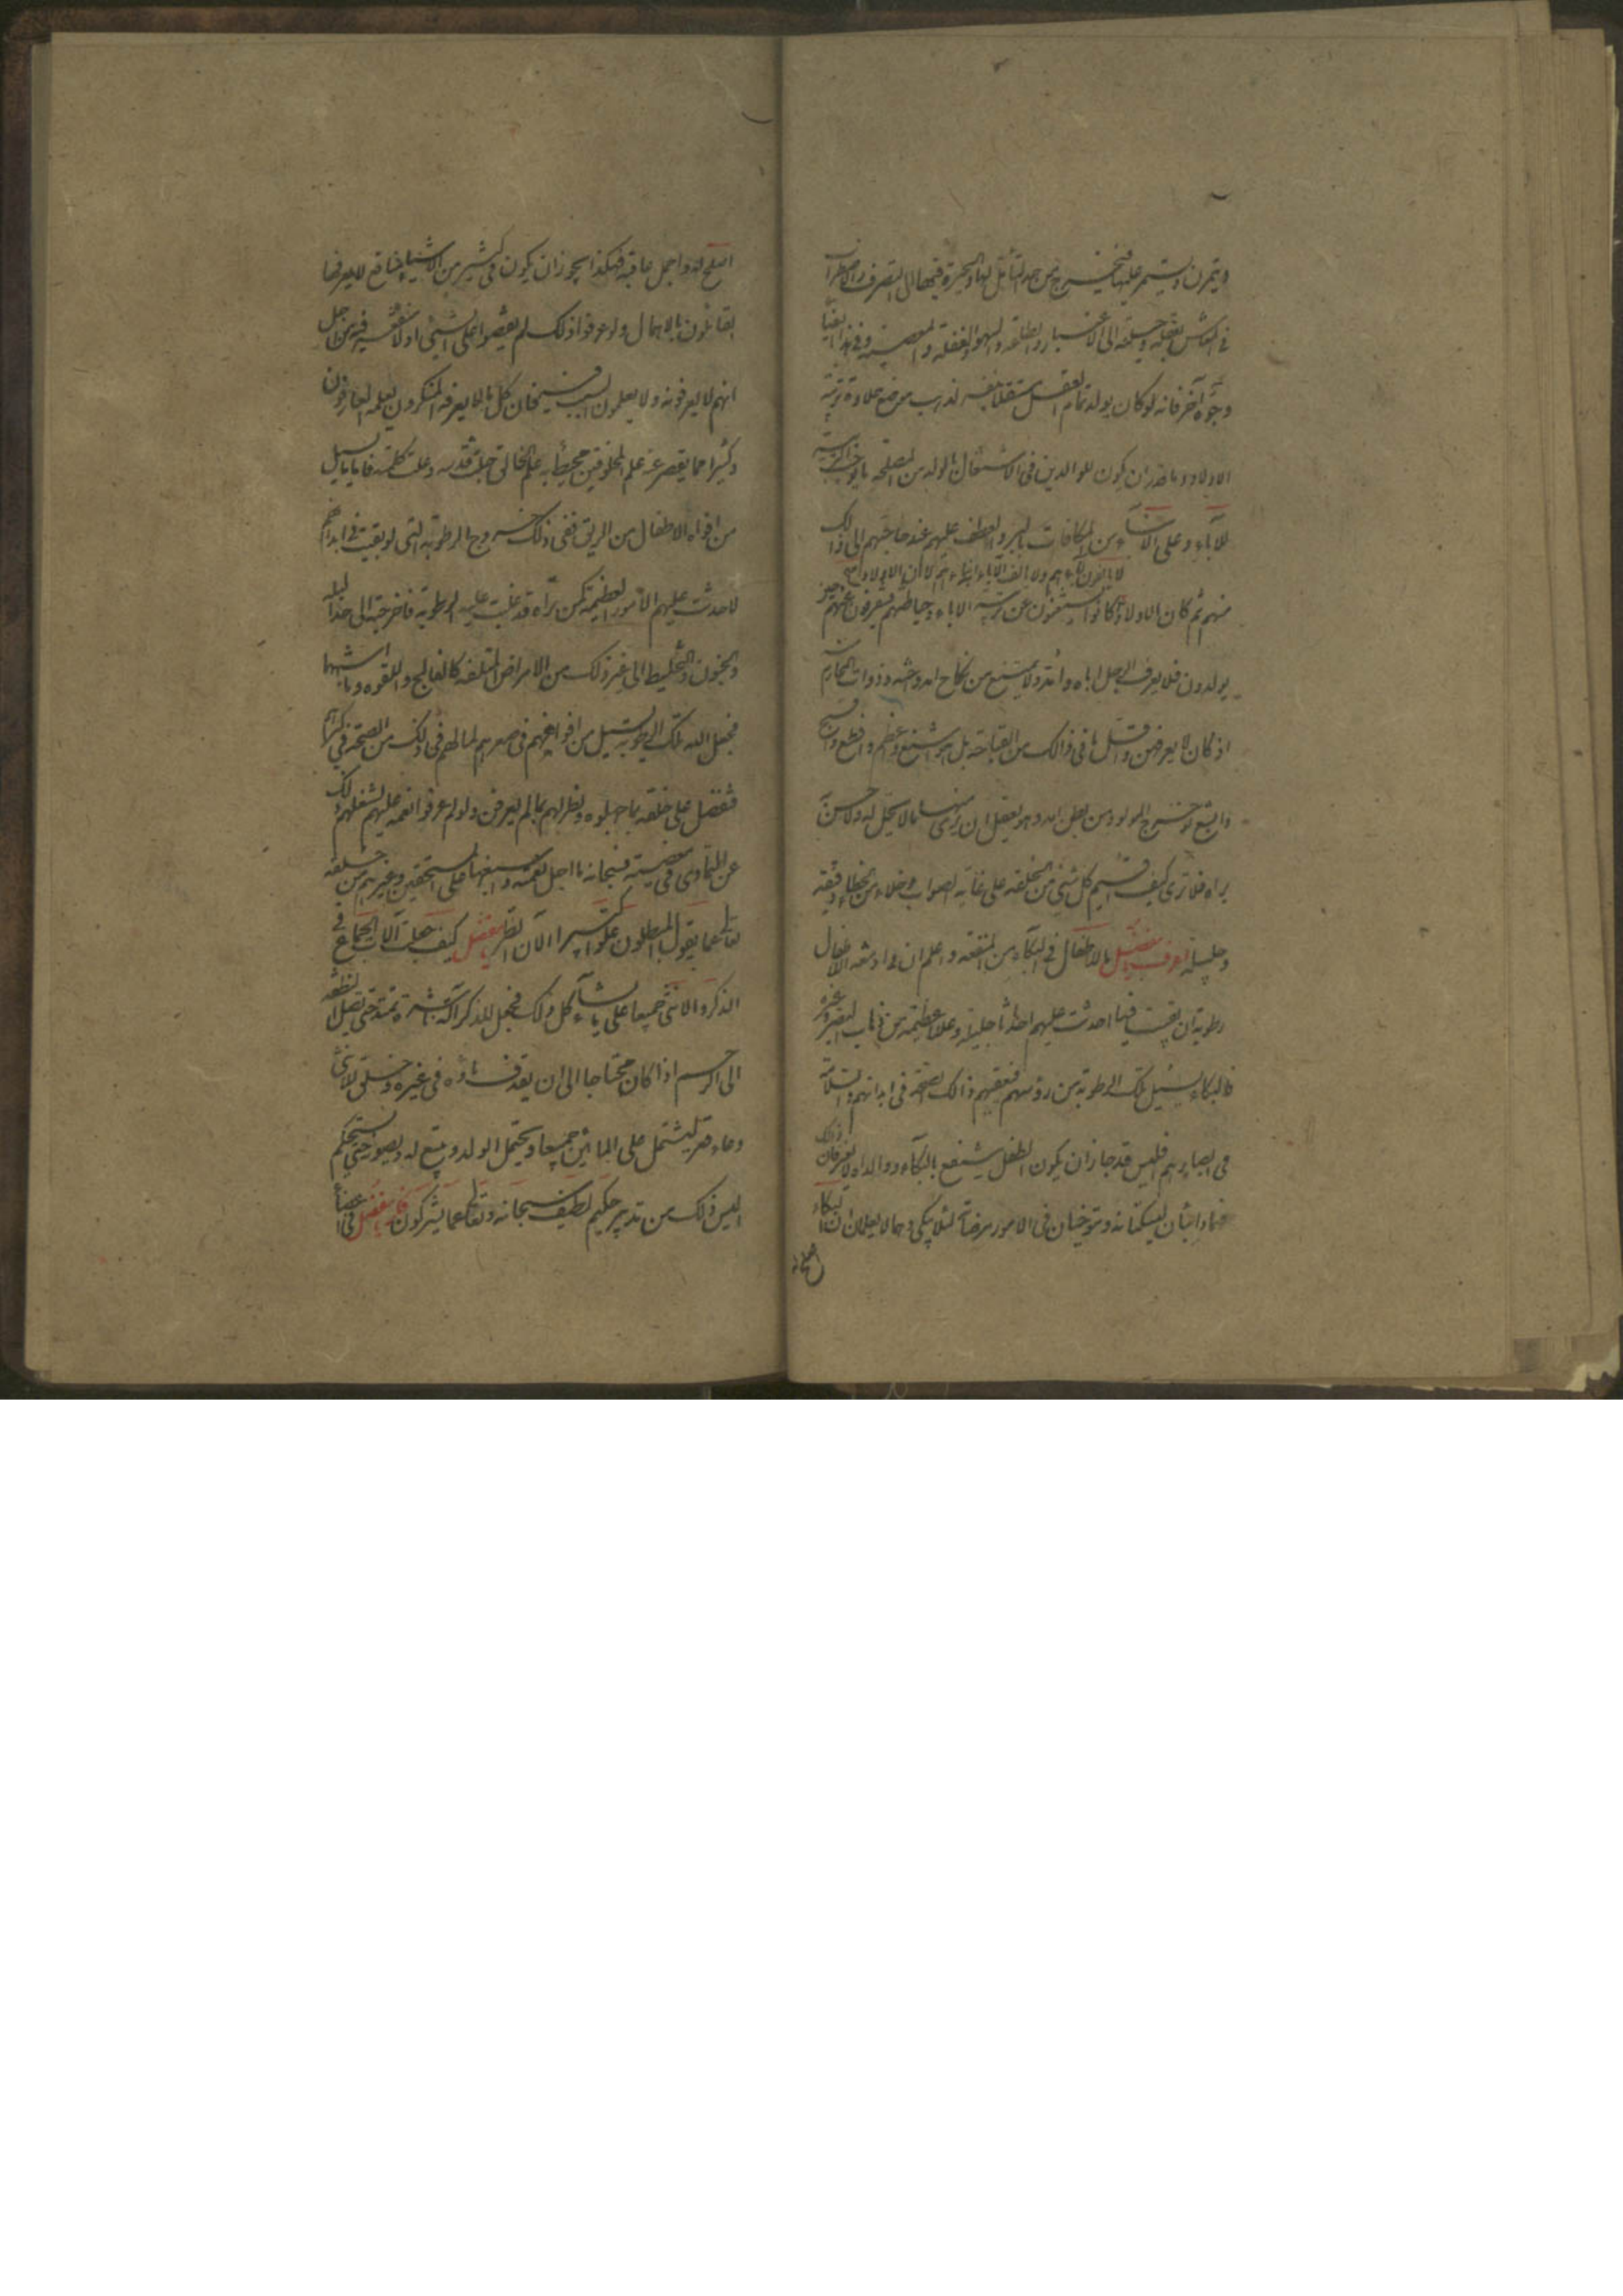 ويتمرن ويستمر عليها فيخرج من حد التأمل لها والحيرة فيها الى التصرف والاضطراب
في المعاش بعقله وحيلته والى الاعتبار والطاعة والسهو والغفلة والمعصية وفي هذا ايضا
وجوه آخر فانه لو كان يولد تمام العقل مستقلا بنفسه لذهب موضع حلاوة تربية
الاولاد وما قدر ان يكون للوالدين في الاشتغال بالولد من المصلحة وما يوجب التربية
للآباء وعلى الأبناء من المكافات بالبر والعطف عليهم عند حاجتهم الى ذالك
لا يالفون آباءهم ولا يالف الآباء ابناءهم لان الاولاد
منهم ثم كان الاولاد كانوا يستغنون عن تربية الاباء وحياطتهم فيتفرقون عنهم حين
يولدون فلا يعرف الرجل اباه وامه ولا يمتنع من نكاح امه واخته وذوات المحارم منه
اذ كان لا يعرفهن واقل ما في ذالك من القباحة بل هو اشنع واعظم وافظع واقبح
وابشع لو خرج المولود من بطن امه وهو يعقل ان يرى منها ما لا يحل له ولا يحسن به
يراه فلا ترى كيف اقيم كل شيء من الخلقة على غاية الصواب وخلا من الخطاء دقيقه
وجليله اعرف يا مفضل ما للاطفال في البكاء من المنفعة واعلم ان في ادمغة الاطفال
رطوبة ان بقيت فيها احدثت عليهم احداثا جليلة وعللا عظيمة من ذهاب البصر وغيره
فالبكاء يسيل تلك الرطوبة من رؤسهم فيعقبهم ذالك الصحة في ابدانهم والسلامة
في ابصارهم فليس قد جاز ان يكون الطفل ينتفع بالبكاء ووالداه لا يعرفان ذلك
فهما دائبان ليسكتانه ويتوخيان في الامور مرضاته لئلا يبكي وهما لا يعلمان ان البكاء
اصلح له
اصلح له واجمل عاقبة فهكذا يجوز ان يكون في كثير من الاشياء منافع لا يعرفها
القائلون بالاهمال ولو عرفوا ذلك لم يقضوا على الشيء انه لا منفعة فيه من اجل
انهم لا يعرفونه ولا يعلمون السبب فيه فان كل ما لا يعرفه المنكرون يعلمه العارفون
وكثيرا مما يقصر عنه علم المخلوقين محيط به علم الخالق جل قدسه وعلت كلمته فاما ما يسيل
من افواه الاطفال من الريق ففي ذلك خروج الرطوبة التي لو بقيت في ابدانهم
لاحدثت عليهم الامور العظيمة كمن تراه قد غلبت عليه الرطوبة فاخرجته الى حد البله
والجنون والتخليط الى غير ذلك من الامراض المتلفة كالفالج واللقوه وما اشبهها
فجعل الله تلك الرطوبة تسيل من افواههم في صغرهم لما لهم في ذلك من الصحة في كبرهم
فتفضل على خلقه بما جهلوه ونظر لهم بما لم يعرفوه ولو عرفوا نعمه عليهم لشغلهم ذلك
عن التمادى في معصيته فسبحانه ما اجل نعمته واسبغها على المستحقين وغيرهم من خلقه
تعالى عما يقول المبطلون علوا كبيرا الآن انظر يا مفضل كيف جعلت آلات الجماع في
الذكر والانثى جميعا على ما يشاكل ذلك فجعل للذكر آلة ناشرة تمتد حتى تصل النطفة
الى الرحم اذا كان محتاجا الى ان يقذف ماؤه في غيره وخلق للانثى
وعاء قعر ليشتمل على المائين جميعا ويحتمل الولد ويتسع له ويصونه حتى يستحكم
اليس ذلك من تدبير حكيم لطيف سبحانه وتعالى عما يشركون فكر يا مفضل في اعضاء